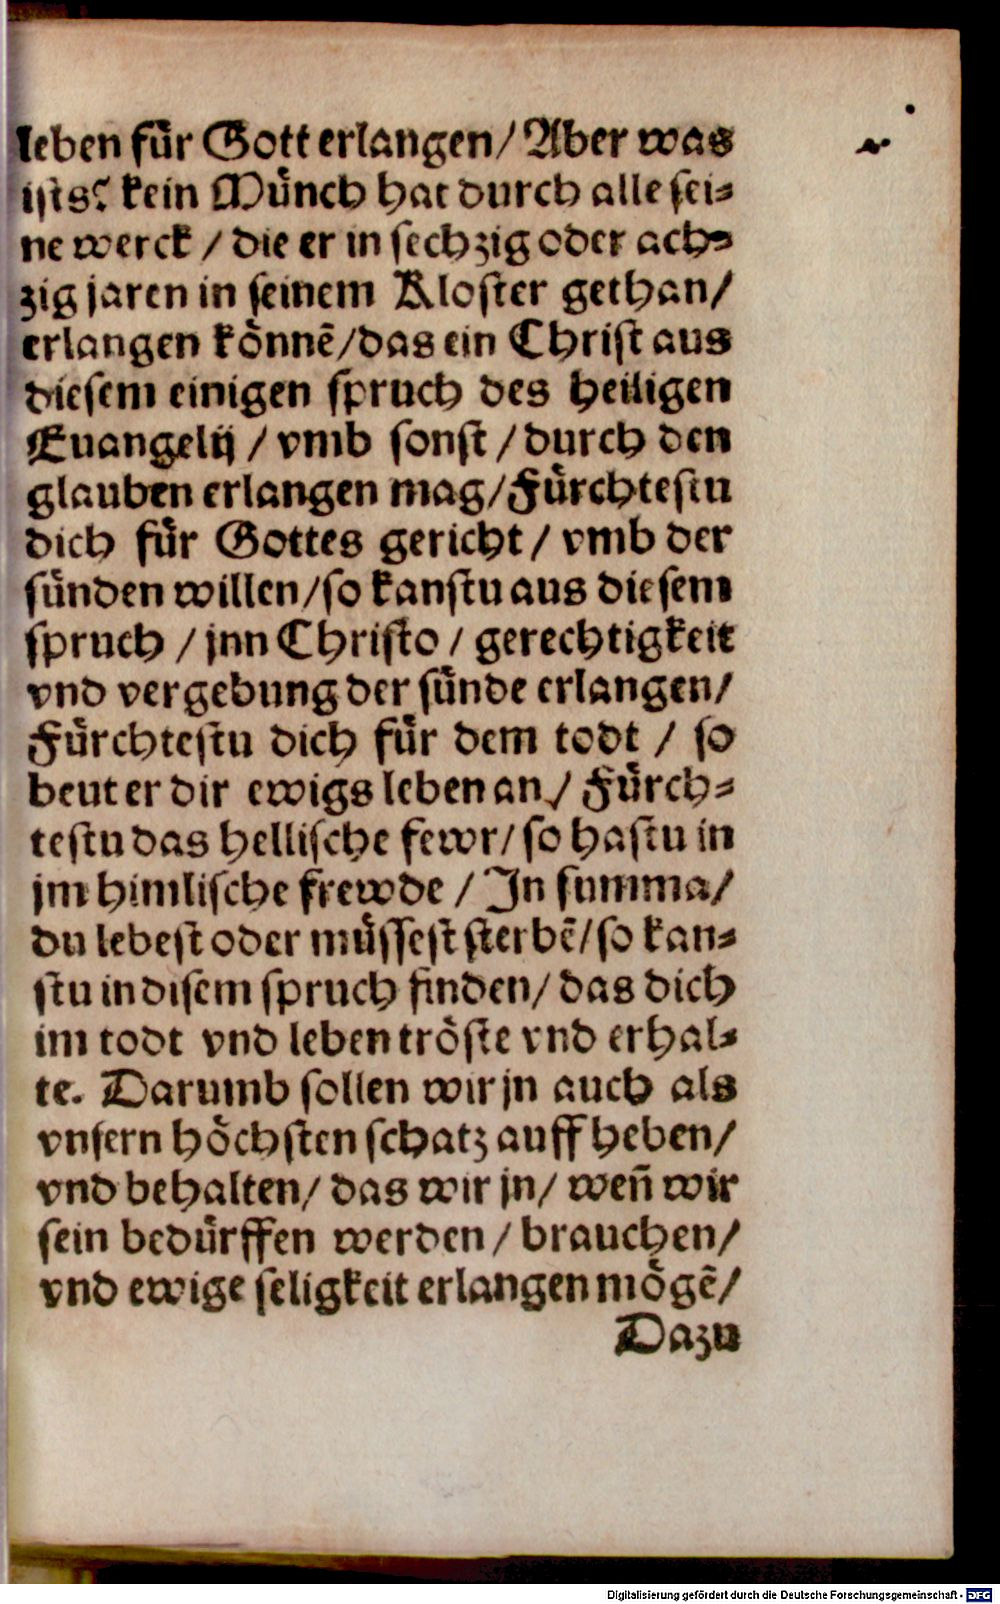 leben für Gott erlangen/ Aber was
ists? kein Münch hat durch alle sei-
ne werck / die er in sechzig oder ach-
zig jaren in seinem Kloster gethan/
erlangen könnē/das ein Christ aus
diesem einigen spruch des heiligen
Euangelij / vmb sonst / durch den
glauben erlangen mag/Fürchtestu
dich für Gottes gericht / vmb der
sünden willen/so kanstu aus diesem
spruch / jnn Christo / gerechtigkeit
vnd vergebung der sünde erlangen/
Fürchtestu dich für dem todt / so
beut er dir ewigs leben an / Fürch-
testu das hellische fewr/ so hastu in
jm himlische frewde / In summa/
du lebest oder müssest sterbē/so kan-
stu in disem spruch finden/ das dich
im todt vnd leben tröste vnd erhal-
te. Darumb sollen wir jn auch als
vnsern höchsten schatz auff heben/
vnd behalten/ das wir jn/ weñ wir
sein bedürffen werden / brauchen/
vnd ewige seligkeit erlangen mögē/
Dazu
Digitalisierung gefördert durch die Deutsche Forschungsgemeinschaft - DFG